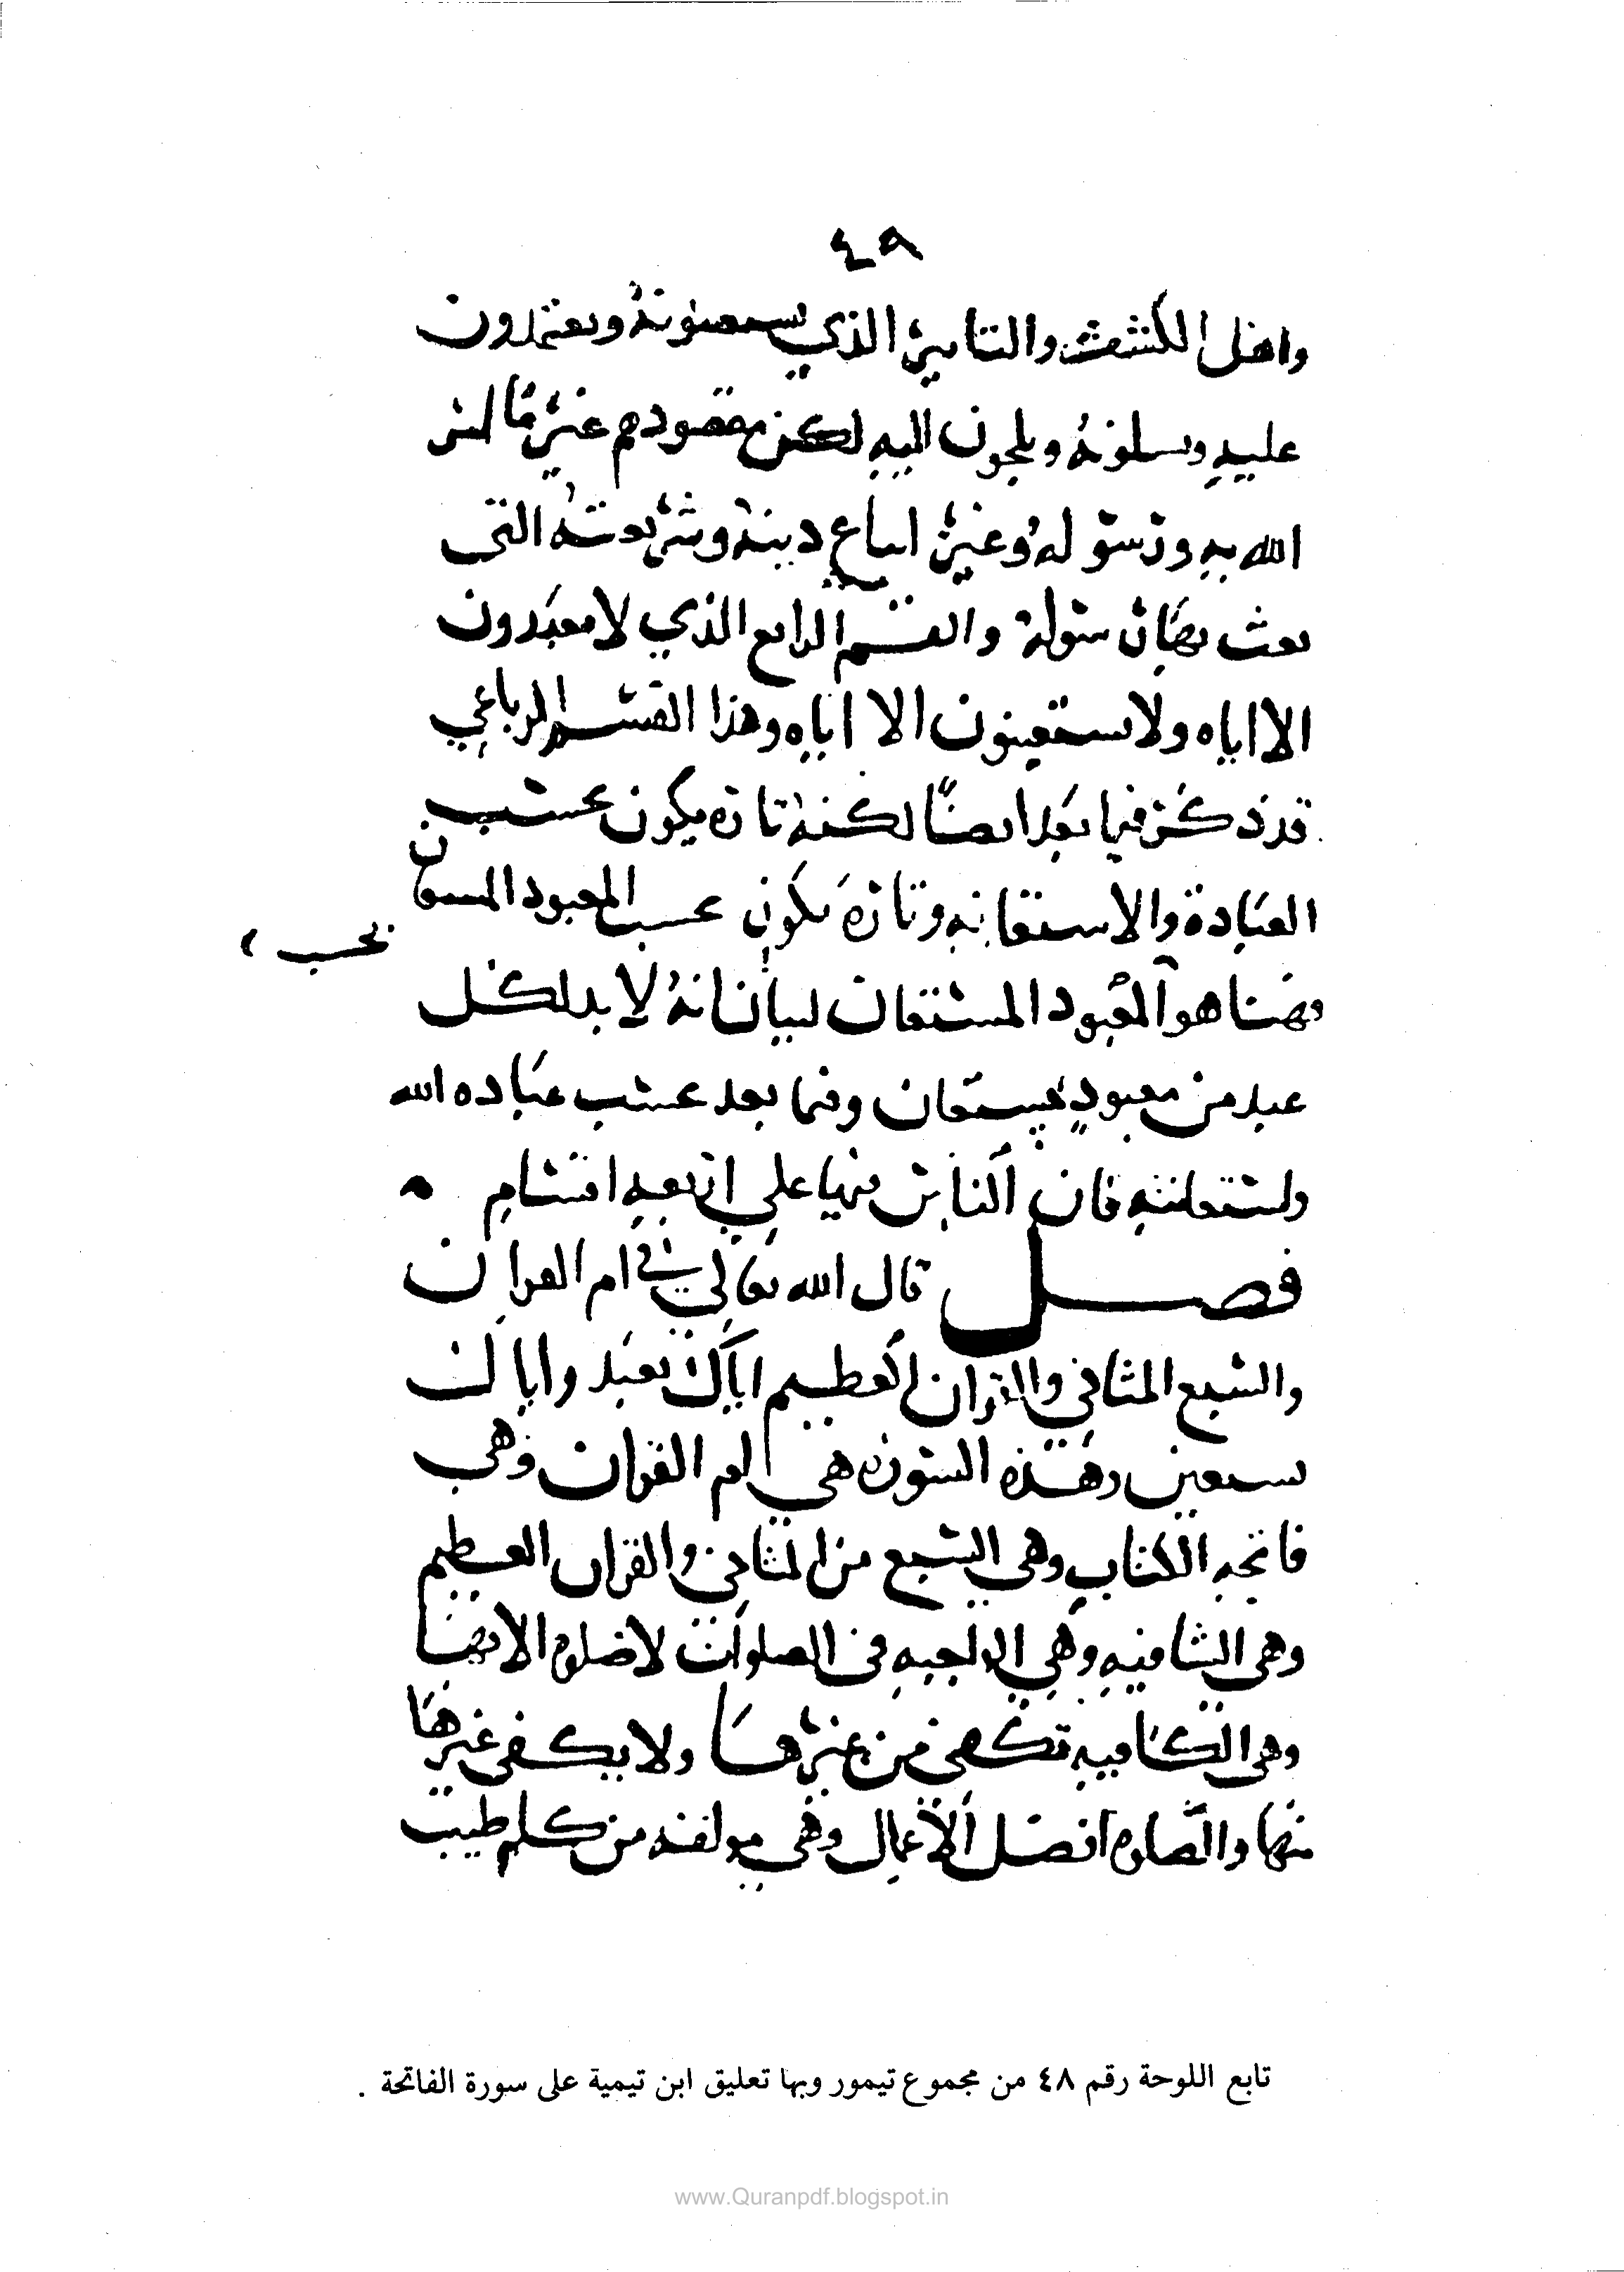 ٤٨
واهل الكشف والتاثير الذي يستعينونه ويعتمدون
عليه ويسلونه ويلجون اليه لكن مقصودهم غير ما امر
الله به ورسوله وغير اتباع دينه وشريعته التي
بعث بها رسوله والقسم الرابع الذي لا يعبدون
الا اياه ولا يستعينون الا اياه وهذا القسم الرباعي
قد ذكر فيما بعد ايضا لكنه تارة يكون بحسب
العبادة والاستعانه وتارة يكون بحسب المعبود المستعان
بحسب
فهنا هو المعبود المستعان لبيان انه لا بد لكل
عبد من معبود مستعان وفيما بعد بحسب عباده الله
واستعانته فان الناس فيها على اربعه اقسام
فصل قال الله تعالى في ام القران
والسبع المثاني والقران العظيم اياك نعبد واياك
نستعين وهذه السورة هي ام القران وهي
فاتحه الكتاب وهي السبع من المثاني والقران العظيم
وهي الشافيه وهي الواجبه في الصلوات لا صلوة الا بها
وهي الكافيه تكفي من غيرها ولا يكفي غيرها
منها والصلوة افضل الاعمال وهي مولفه من كلم طيب
تابع اللوحة رقم ٤٨ من مجموع تيمور وبها تعليق ابن تيمية على سورة الفاتحة .
www.Quranpdf.blogspot.in